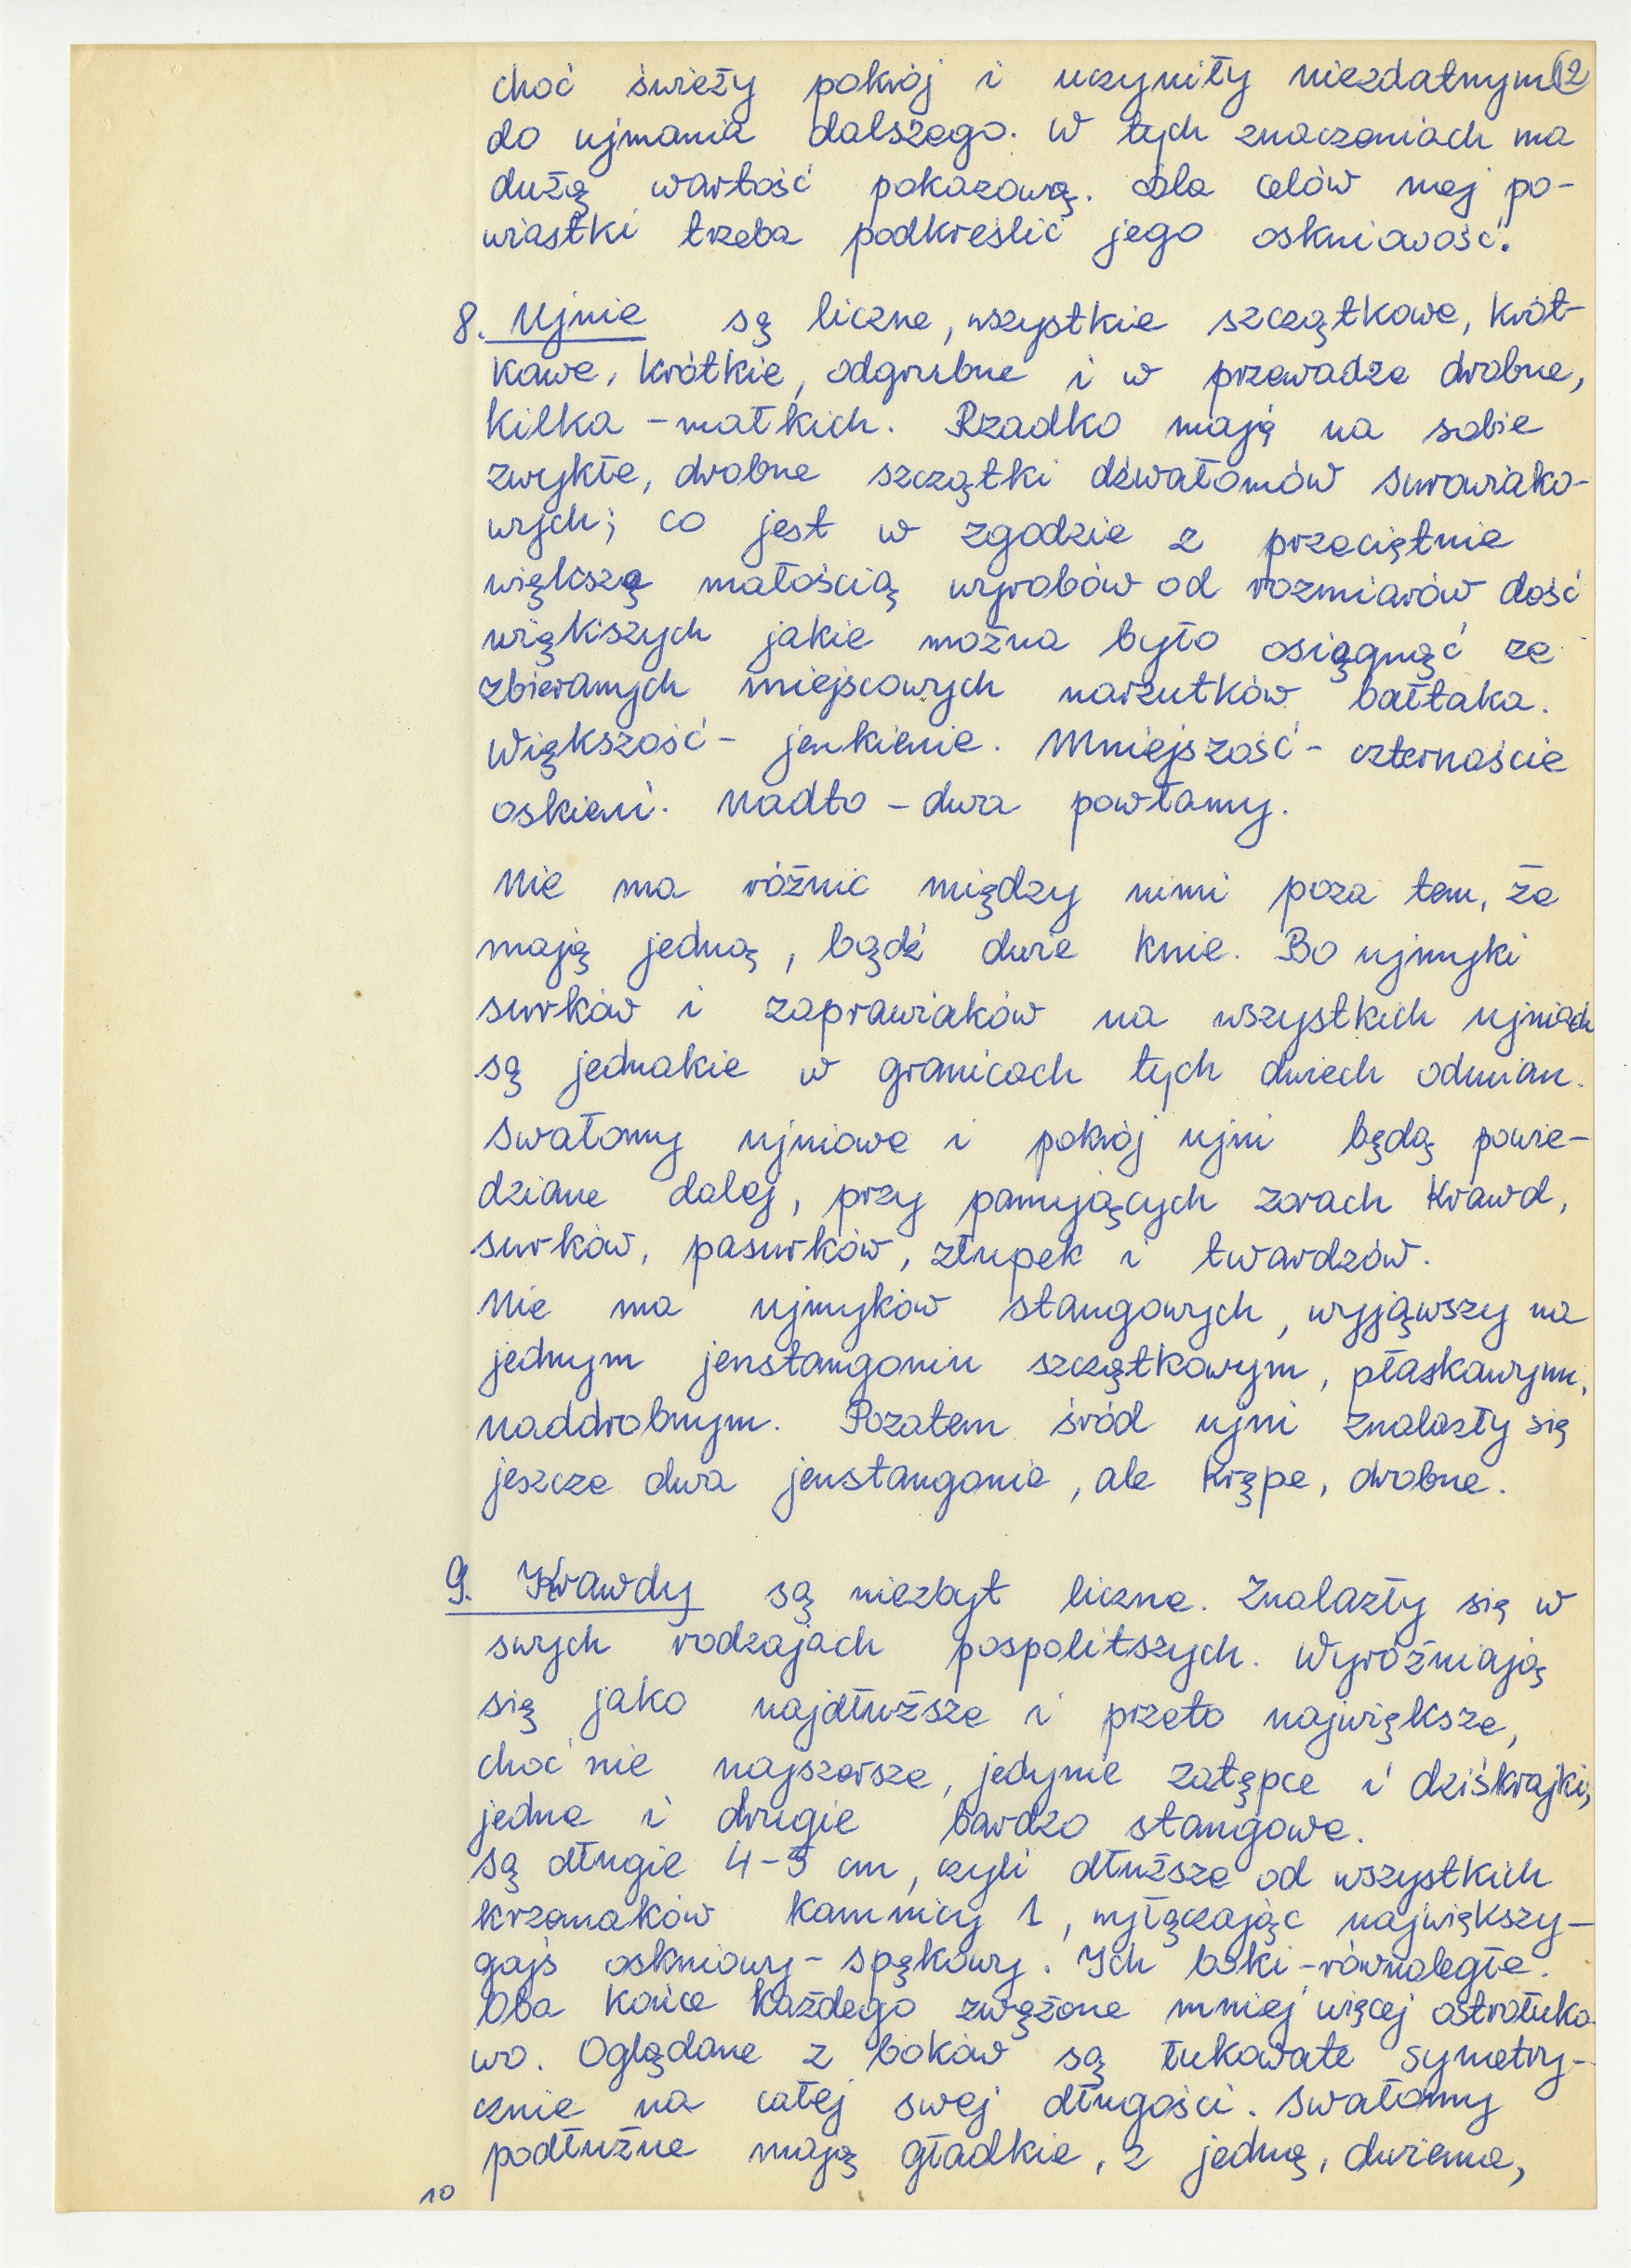 choć świeży pokrój i uczyniły niezdatnym 12
do ujmania dalszego. W tych znaczeniach ma
dużą wartość pokazową. Dla celów mej po-
wiastki trzeba podkreślić jego oskniowość.
8. Ujnie są liczne, wszystkie szczątkowe, krót-
kawe, krótkie, odgrubne i w przewadze drobne,
kilka - małkich. Rzadko mają na sobie
zwykłe, drobne szczątki dźwałomów surowiako-
wych; co jest w zgodzie z przeciętnie
większą małością wyrobów od rozmiarów dość
więkiszych jakie można było osiągnąć ze
zbieranych miejscowych narzutków bałtaka.
Większość - jenkienie. Mniejszość - czternaście
oskieni. Nadto - dwa powłamy.
Nie ma różnic między nimi poza tem, że
mają jedną, bądź dwie knie. Bo ujmyki
surków i zaprawiaków na wszystkich ujniach
są jednakie w granicach tych dwiech odmian.
Swałomy ujniowe i pokrój ujni będą powie-
dziane dalej, przy panujących zorach krawd,
surków, pasurków, złupek i twardzów.
Nie ma ujmyków stangowych, wyjąwszy na
jednym jenstangoniu szczątkowym, płaskawym,
naddrobnym. Pozatem śród ujni znalazły się
jeszcze dwa jenstangonie, ale krępe, drobne.
9. Krawdy są niezbyt liczne. Znalazły się w
swych rodzajach pospolitszych. Wyróżniają
się jako najdłuższe i przeto największe,
choć nie najszersze, jedynie zatępce i dziśkrajki,
jedne i drugie bardzo stangowe.
Są długie 4-5 cm, czyli dłuższe od wszystkich
krzemaków kamnicy 1, wyłączając największy-
gajś oskniowy - spękowy. Ich boki - równoległe.
Oba końce każdego zwężone mniej więcej ostrołuko-
wo. Oglądane z boków są łukowate symetry-
cznie na całej swej długości. Swałomy
podłużne mają gładkie, z jedną, dwiema,
10